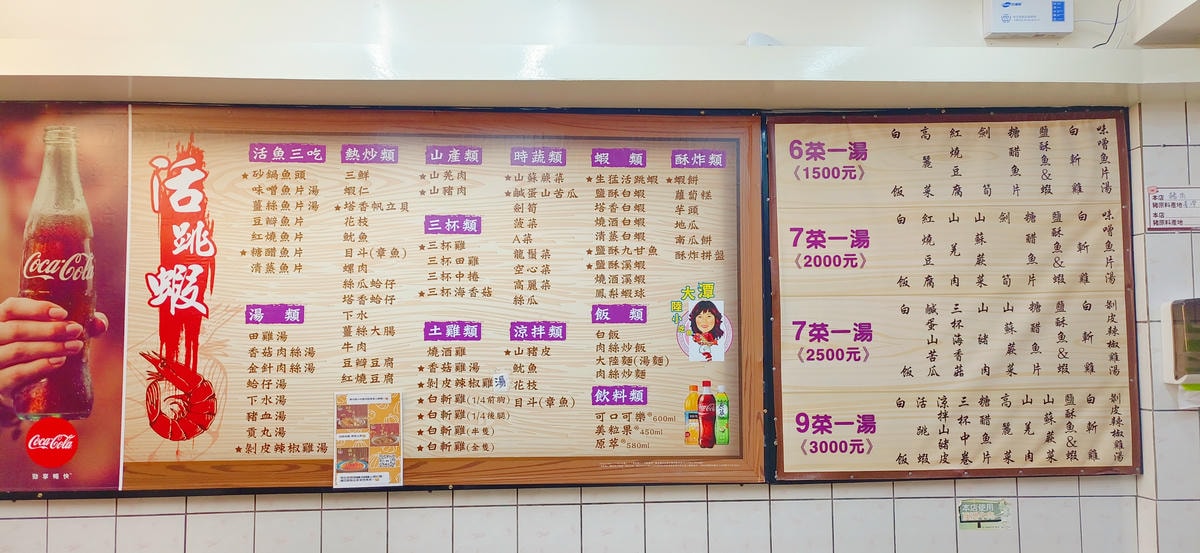 Coca-Cola
Coca-Cola
勁享暢快
活跳蝦
活魚三吃
★砂鍋魚頭
味噌魚片湯
薑絲魚片湯
豆瓣魚片
紅燒魚片
★糖醋魚片
清蒸魚片
湯類
田雞湯
香菇肉絲湯
金針肉絲湯
蛤仔湯
下水湯
豬血湯
貢丸湯
★剝皮辣椒雞湯
熱炒類
三鮮
蝦仁
★塔香帆立貝
花枝
魷魚
目斗(章魚)
螺肉
絲瓜蛤仔
塔香蛤仔
下水
薑絲大腸
牛肉
豆瓣豆腐
紅燒豆腐
山產類
★山羌肉
★山豬肉
三杯類
★三杯雞
★三杯田雞
★三杯中捲
★三杯海香菇
土雞類
燒酒雞
★香菇雞
★剝皮辣椒雞湯
★白斬雞(1/4前胸)
★白斬雞(1/4後腿)
★白斬雞(半隻)
★白斬雞(全隻)
時蔬類
★山蘇蕨菜
★鹹蛋山苦瓜
劍筍
菠菜
A菜
龍鬚菜
空心菜
高麗菜
絲瓜
涼拌類
★山豬皮
魷魚
花枝
目斗(章魚)
蝦類
★生猛活跳蝦
★鹽酥白蝦
塔香白蝦
燒酒白蝦
清蒸白蝦
★鹽酥九甘魚
★鹽酥溪蝦
燒酒溪蝦
鳳梨蝦球
飯類
白飯
肉絲炒飯
大陸麵(湯麵)
肉絲炒麵
飲料類
可口可樂600ml
美粒果450ml
原萃580ml
酥炸類
★蝦餅
蘿蔔糕
芋頭
地瓜
南瓜餅
酥炸拼盤
大潭
陸小姐
6菜一湯
《1500元》
味噌魚片湯
白斬雞
鹽酥魚&蝦
糖醋魚片
劍筍
紅燒豆腐
高麗菜
白飯
7菜一湯
《2000元》
味噌魚片湯
白斬雞
鹽酥魚&蝦
糖醋魚片
劍筍
山蘇蕨菜
山羌肉
紅燒豆腐
白飯
7菜一湯
《2500元》
剝皮辣椒雞湯
白斬雞
鹽酥魚&蝦
糖醋魚片
山蘇蕨菜
山豬肉
三杯海香菇
鹹蛋山苦瓜
白飯
9菜一湯
《3000元》
剝皮辣椒雞湯
白斬雞
鹽酥魚&蝦
山蘇蕨菜
山羌肉
高麗菜
糖醋魚片
三杯中卷
涼拌山豬皮
活跳蝦
白飯
本店
豬原料產地
本店
豬原料產地
本店使用